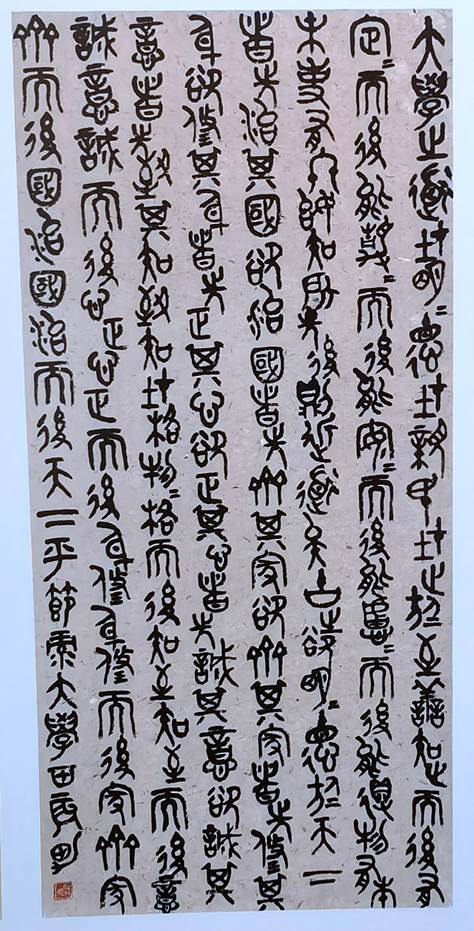 大學之道在明〻德在親民在止於至善知止而後有
定〻而後能靜〻而後能安〻而後能慮〻而後能得物有本
末事有終始知所先後則近道矣古之欲明〻德於天下
者先治其國欲治國者先齊其家欲齊其家者先修其
身欲修其身者先正其心欲正其心者先誠其意欲誠其
意者先致其知致知在格物〻格而後知至知至而後意
誠意誠而後心正心正而後身修身修而後家齊家
齊而後國治國治而後天下平節录大學田